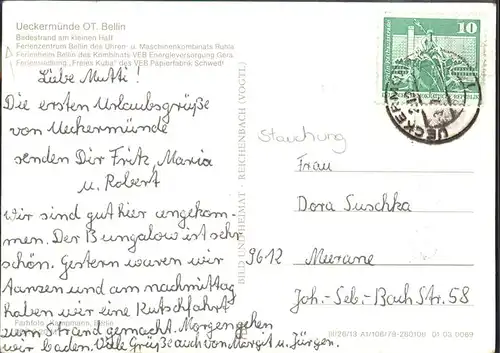 Ueckermünde OT. Bellin
Badestrand am kleinen Haff
Ferienzentrum Bellin des Uhren- u. Maschinenkombinats Ruhla
Ferienheim Bellin des Kombinats VEB Energieversorgung Gera
Feriensiedlung „Freies Kuba" des VEB Papierfabrik Schwedt
10
Liebe Mutti!
Die ersten Urlaubsgrüße
von Ueckermünde
senden Dir Fritz, Maria
u. Robert
Wir sind gut hier angekom-
men. Der Bungalow ist sehr
schön. Gestern waren wir
tanzen und am nachmittag
haben wir eine Kutschfahrt
zum Strand gemacht. Morgen gehen
wir baden. Viele Grüße auch von Margit u. Jürgen.
Farbfoto: Kampmann, Berlin
BILD UND HEIMAT · REICHENBACH (VOGTL)
Frau
Dora Suschka
9612 Meerane
Joh.-Seb.-Bach Str. 58
III/26/13 A1/106/78-280106 01 00 0069